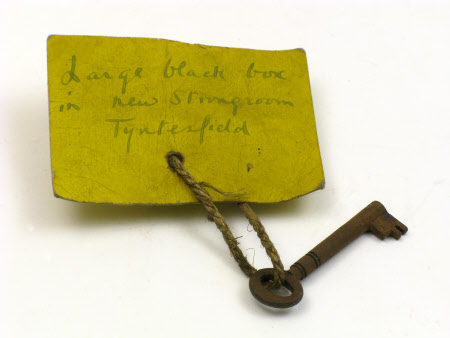 Large black box
in new Strongroom
Tyntesfield